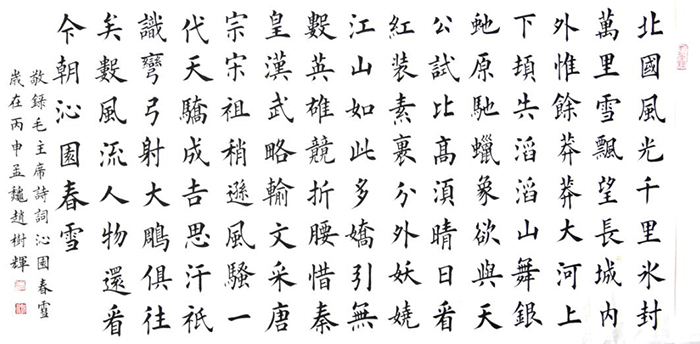 北國風光千里氷封
萬里雪飄望長城内
外惟餘莽莽大河上
下頓失滔滔山舞銀
虵原馳蠟象欲與天
公試比高須晴日看
紅装素裹分外妖嬈
江山如此多嬌引無
數英雄競折腰惜秦
皇漢武略輸文采唐
宗宋祖稍遜風騷一
代天驕成吉思汗祇
識彎弓射大鵰俱往
矣數風流人物還看
今朝沁園春雪
敬録毛主席詩詞沁園春雪
歲在丙申孟魏趙樹輝